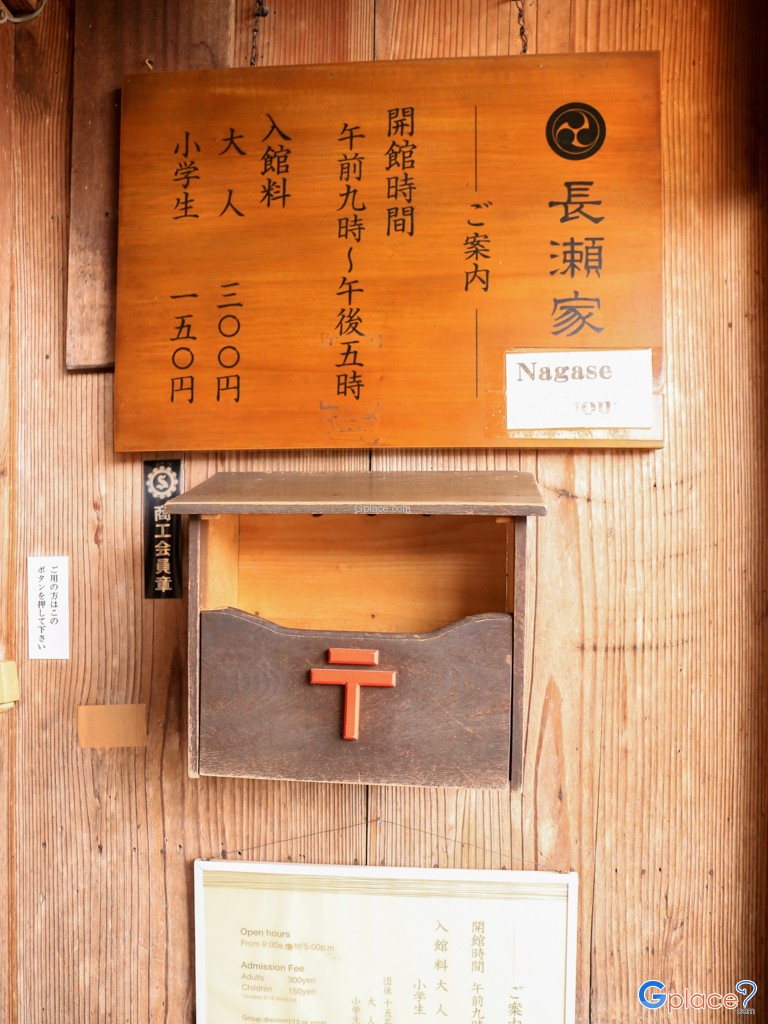 長瀬家
Nagase
ご案内
開館時間
午前九時〜午後五時
入館料
大人 三〇〇円
小学生 一五〇円
商工会員章
ご用の方はこの
ボタンを押して下さい
Gplace.com
Open hours
From 9:00a. to 5:00p.m
Admission Fee
Adults 300yen
Children 150yen
Group discount 15 or more
ご案内
開館時間 午前九時
入館料 大人
小学生
団体
大人
小学生
Gplace?
.com